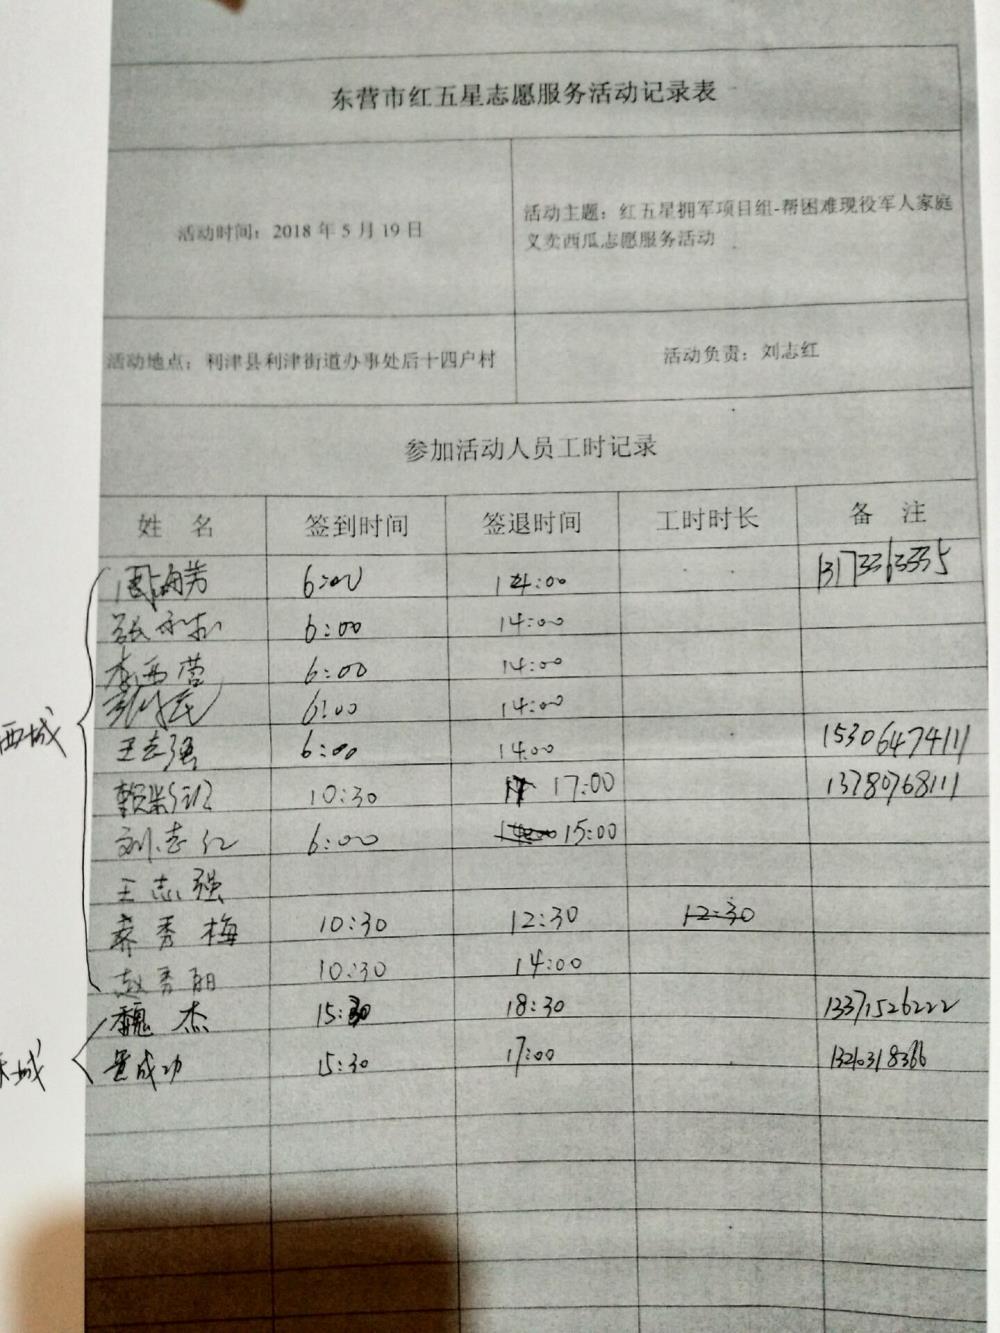 东营市红五星志愿服务活动记录表
活动时间：2018年5月19日
活动主题：红五星拥军项目组-帮困难现役军人家庭
义卖西瓜志愿服务活动
活动地点：利津县利津街道办事处后十四户村
活动负责：刘志红
参加活动人员工时记录
姓 名 签到时间 签退时间 工时时长 备 注
西城
周海芳 6:00 14:00 13173363335
张 6:00 14:00
李西营 6:00 14:00
6:00 14:00
王志强 6:00 14:00 15306474111
10:30 17:00 13780768111
刘志红 6:00 15:00
王志强
秀梅 10:30 12:30 12:30
赵秀丽 10:30 14:00
魏杰 15:30 18:30 13371526222
成功 15:30 17:00